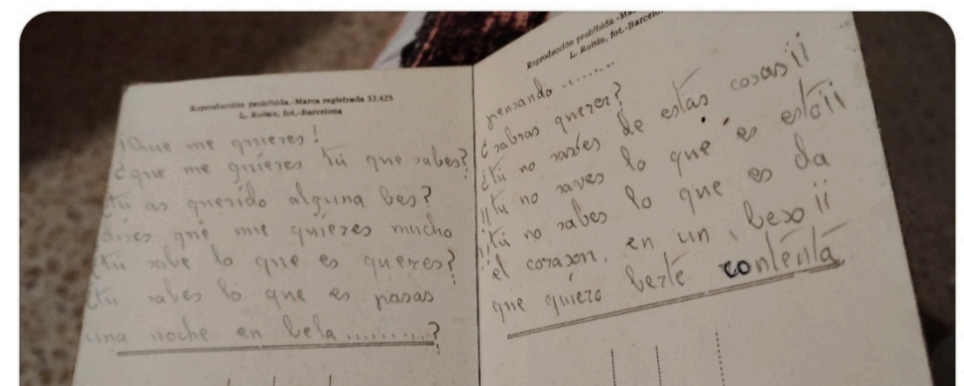 Reproducción prohibida.-Marca registrada 53.425
L. Roisin, fot.-Barcelona
¡Que me quieres!
¿que me quieres tú que sabes?
¿tú as querido alguna bes?
dises que me quieres mucho
¿tú sabe lo que es queres?
¿tú sabes lo que es pasas
una noche en bela .........?
Reproducción prohibida.-Mar
L. Roisin, fot.-Barcelo
pensando ........
¿sabras querer?
¿tú no saves de estas cosas¡¡
¡¡tú no saves lo que es esto¡¡
¡¡tú no sabes lo que es da
el corason, en un beso ¡¡
que quiero berte contenta.